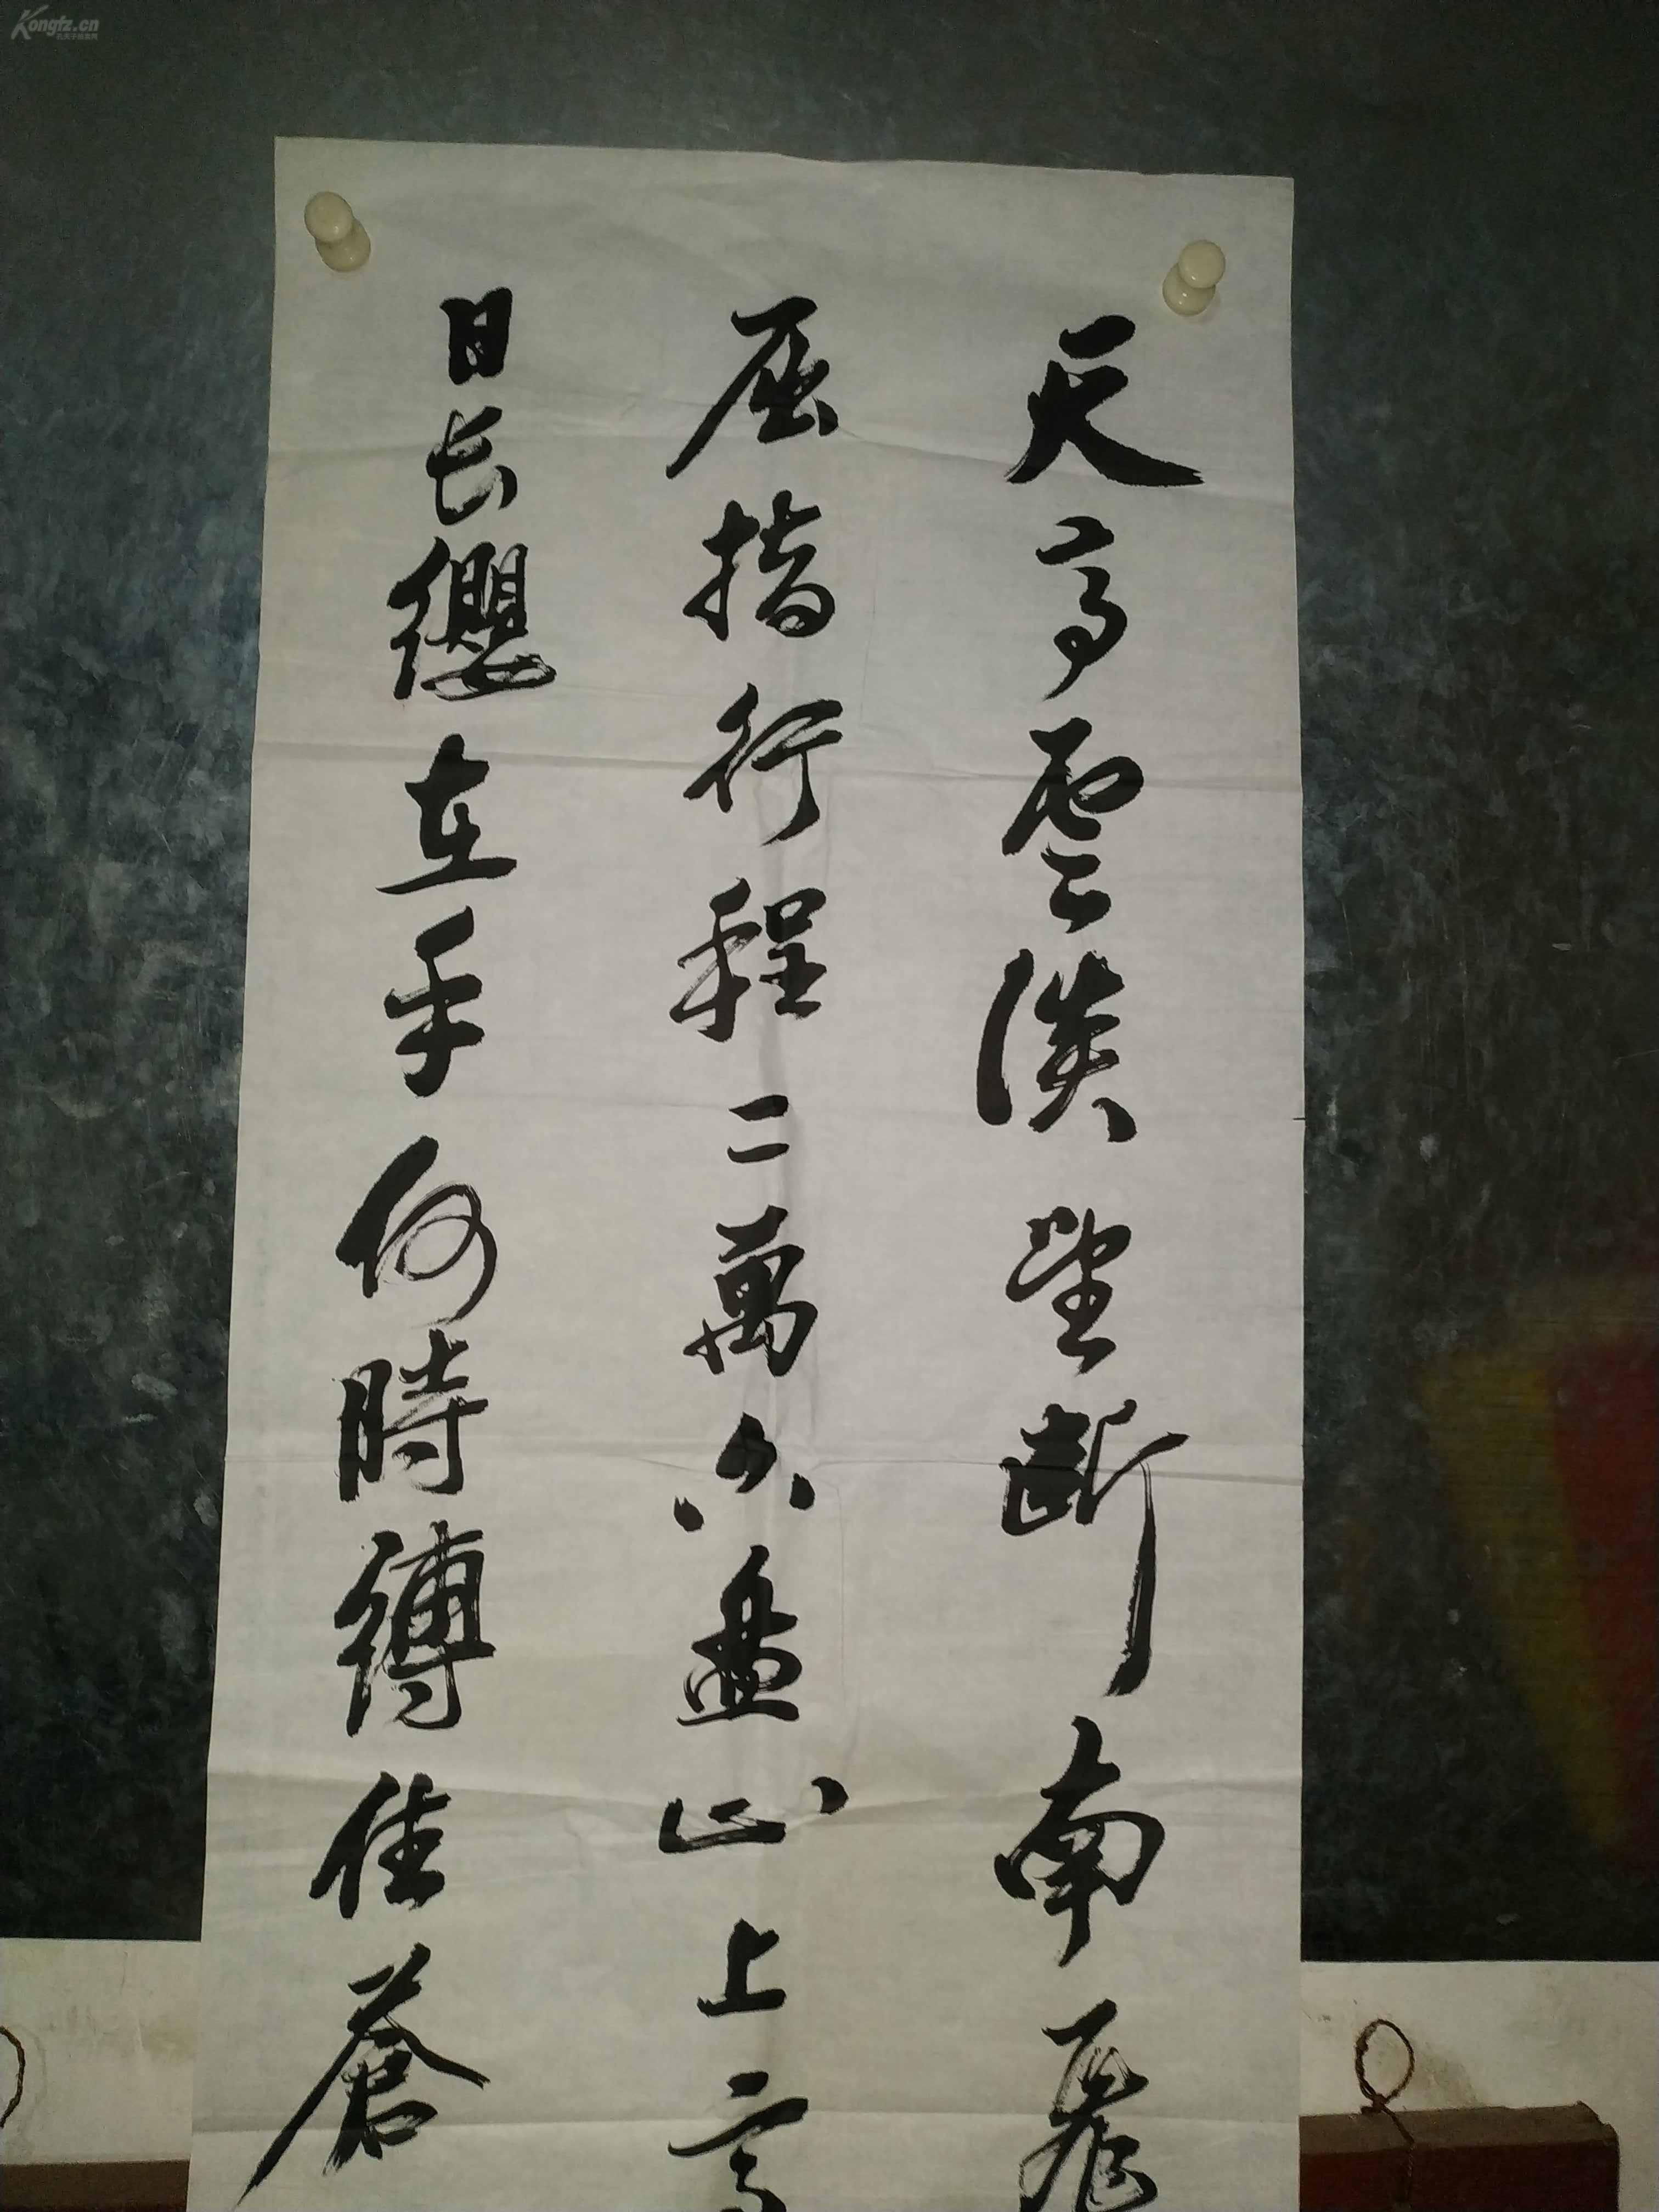 天高雲淡望斷南飛
屈指行程二萬六盤山上高
日長纓在手何時縛住蒼
Kongfz.cn